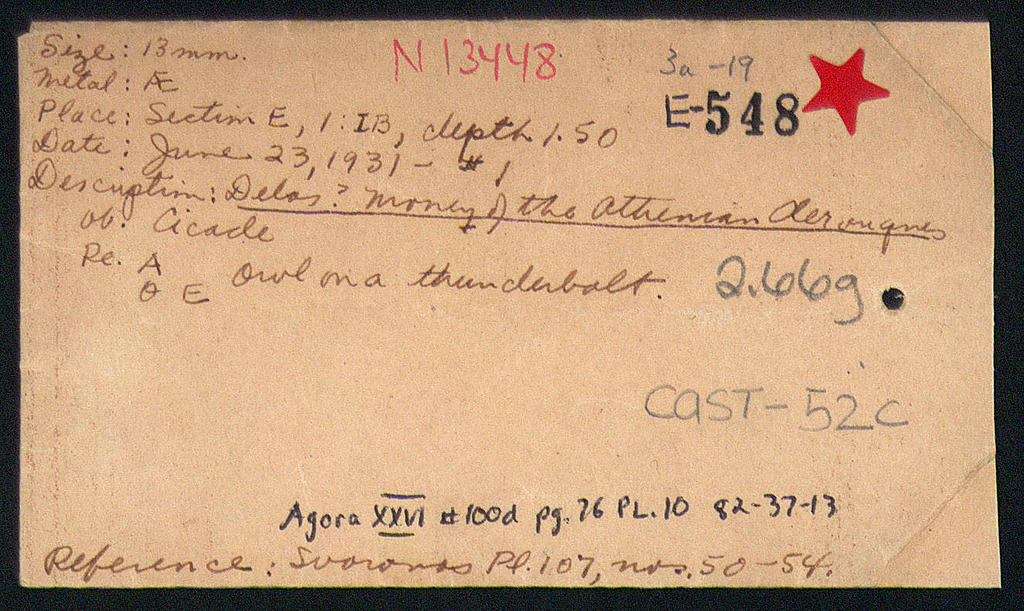 Size: 13 mm.
N 13448
3a -19
Metal: Æ
E-548
Place: Section E, 1:IB, depth 1.50
Date: June 23, 1931 - #1
Description: Delos? Money of the Athenian
Ob. Cicade
Re. A Θ E Owl on a thunderbolt.
2.66g
CAST-52C
Agora XXVI #100d pg. 76 PL.10 82-37-13
Reference: Svoronos Pl. 107, nos. 50-54.